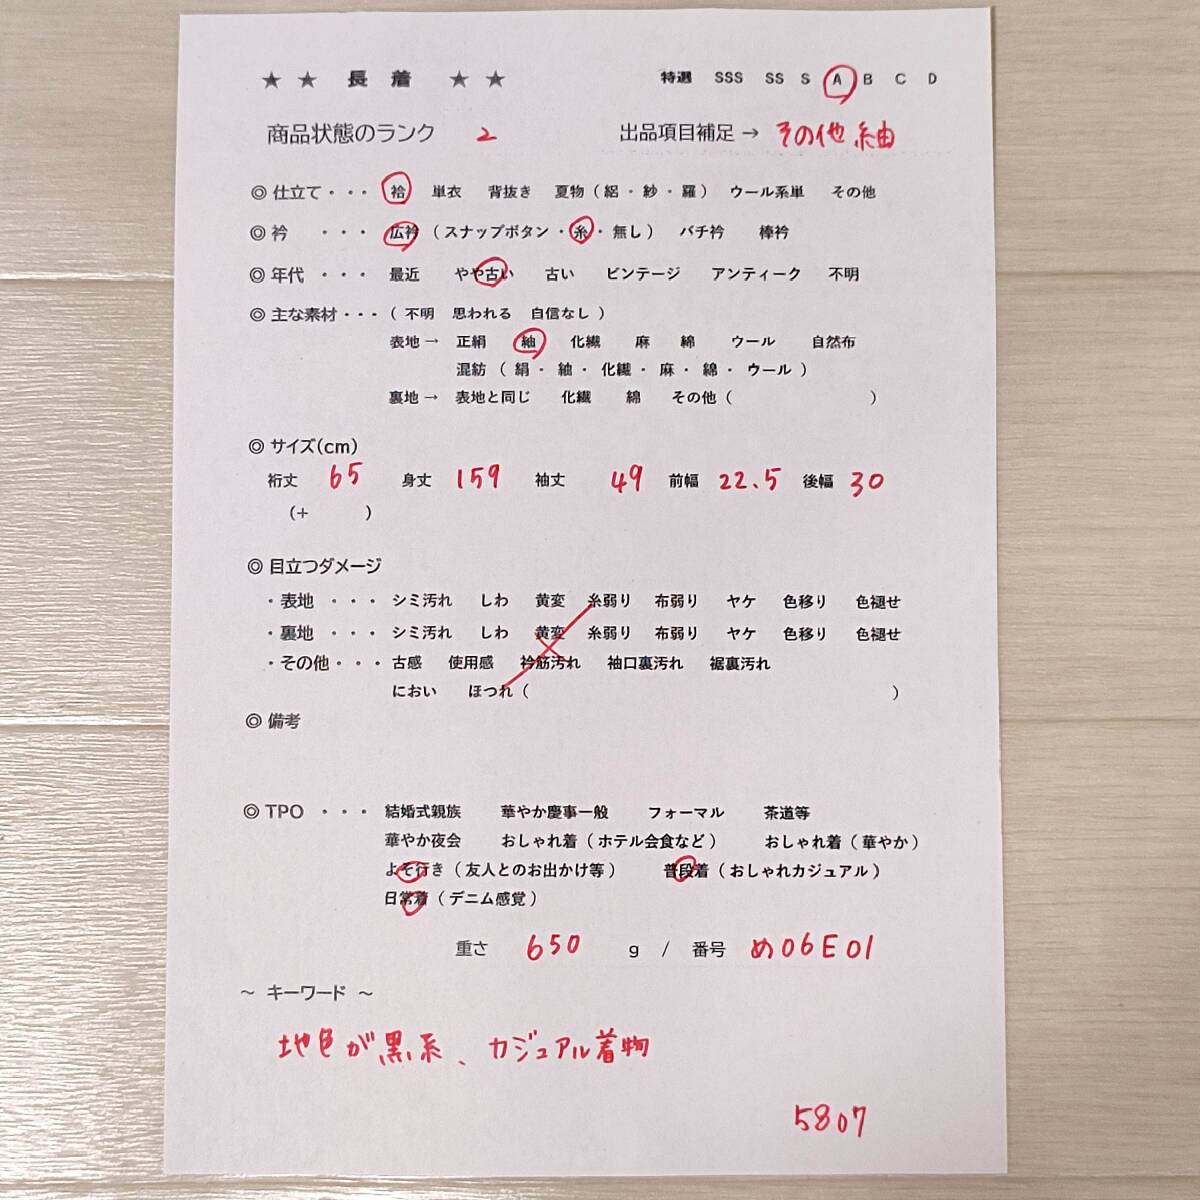 ★ ★ 長 着 ★ ★ 特選 SSS SS S A B C D
商品状態のランク 2 出品項目補足→ その他 紬
◎ 仕立て・・・ 袷 単衣 背抜き 夏物（絽・紗・羅） ウール系単 その他
◎ 衿 ・・・ 広衿（スナップボタン・糸・無し） バチ衿 棒衿
◎ 年代 ・・・ 最近 やや古い 古い ビンテージ アンティーク 不明
◎ 主な素材・・・（ 不明 思われる 自信なし ）
表地→ 正絹 紬 化繊 麻 綿 ウール 自然布
混紡（ 絹・ 紬・ 化繊・ 麻・ 綿・ ウール ）
裏地→ 表地と同じ 化繊 綿 その他（ ）
◎ サイズ(cm)
裄丈 65 身丈 159 袖丈 49 前幅 22.5 後幅 30
(＋ )
◎ 目立つダメージ
・表地 ・・・ シミ汚れ しわ 黄変 糸弱り 布弱り ヤケ 色移り 色褪せ
・裏地 ・・・ シミ汚れ しわ 黄変 糸弱り 布弱り ヤケ 色移り 色褪せ
・その他・・・ 古感 使用感 衿筋汚れ 袖口裏汚れ 裾裏汚れ
におい ほつれ（ ）
◎ 備考
◎ TPO ・・・ 結婚式親族 華やか慶事一般 フォーマル 茶道等
華やか夜会 おしゃれ着（ホテル会食など） おしゃれ着（華やか）
よそ行き（友人とのお出かけ等） 普段着（おしゃれカジュアル）
日常着（デニム感覚）
重さ 650 g / 番号 め06E01
～ キーワード ～
地色が黒系、カジュアル着物
5807